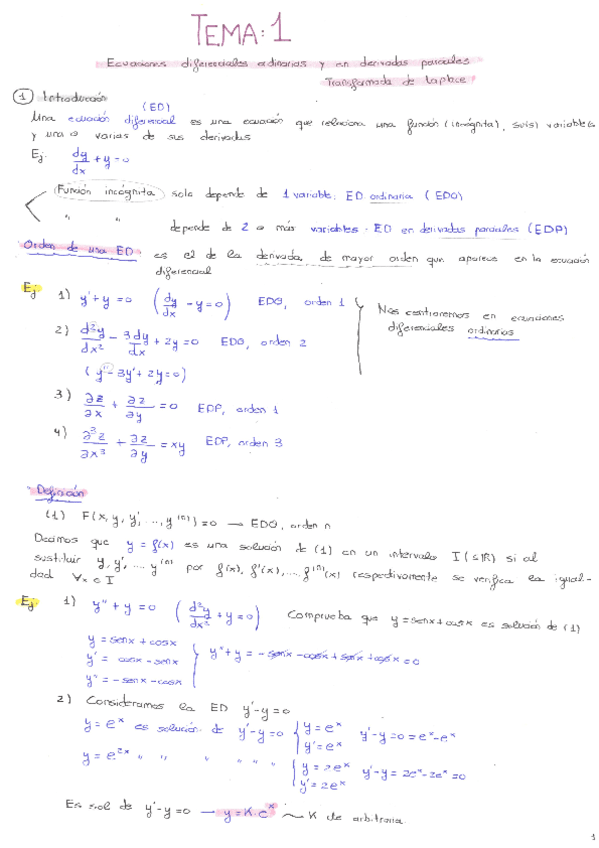 TEMA: 1
Ecuaciones diferenciales ordinarias y en derivadas parciales
Transformada de Laplace
① Introducción
(ED)
Una ecuación diferencial es una ecuación que relaciona una función (incógnita), su(s) variable/s
y una o varias de sus derivadas
Ej: dy/dx + y = 0
Función incógnita solo depende de 1 variable: ED ordinaria (EDO)
" " depende de 2 o más variables - ED en derivadas parciales (EDP)
Orden de una ED es el de la derivada, de mayor orden que aparece en la ecuación
diferencial
Ej 1) y' + y = 0 (dy/dx - y = 0) EDO, orden 1
Nos centraremos en ecuaciones
diferenciales ordinarias
2) d²y/dx² - 3dy/dx + 2y = 0 EDO, orden 2
(y'' - 3y' + 2y = 0)
3) ∂z/∂x + ∂z/∂y = 0 EDP, orden 1
4) ∂³z/∂x³ + ∂z/∂y = xy EDP, orden 3
Definición
(1) F(x, y, y', ..., y⁽ⁿ⁾) = 0 → EDO, orden n
Decimos que y = f(x) es una solución de (1) en un intervalo I (⊆ℝ) si al
sustituir y, y', ... y⁽ⁿ⁾ por f(x), f'(x), ... f⁽ⁿ⁾(x) respectivamente se verifica la igual-
dad ∀x ∈ I
Ej 1) y'' + y = 0 (d²y/dx² + y = 0) Comprueba que y = senx + cosx es solución de (1)
y = senx + cosx
y' = cosx - senx
y'' = -senx - cosx
y'' + y = -senx - cosx + senx + cosx = 0
2) Consideramos la ED y' - y = 0
y = eˣ es solución de y' - y = 0 { y = eˣ y' = eˣ y' - y = 0 = eˣ - eˣ
y = e²ˣ " " " " " " { y = 2eˣ y' = 2eˣ y' - y = 2eˣ - 2eˣ = 0
Es sol de y' - y = 0 → y = K·eˣ ~ K cte arbitraria.
1